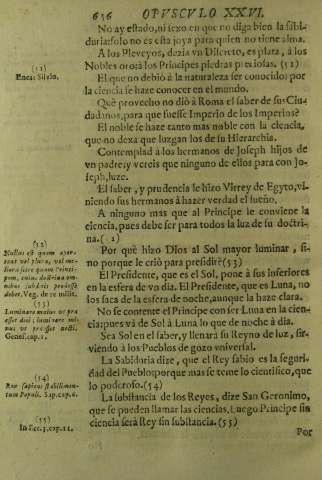 636 OPVSCVLO XXVI.
No ay estado, ni sexo en que no diga bien la sabi-
duria: solo no es esta joya para quien no tiene alma.
A los Pleveyos, dezia vn Discreto, es plata, à los
Nobles oro: à los Principes piedras preciosas. (12)
El que no debiò à la naturaleza ser conocido; por
la ciencia se haze conocer en el mundo.
Què provecho no diò à Roma el saber de sus Ciu-
dadanos, para que fuesse Imperio de los Imperios?
El noble se haze tanto mas noble con la ciencia,
que no dexa que luzgan los de su Hierarchia.
Contemplad à los hermanos de Joseph hijos de
vn padre; y vereis que ninguno de ellos para con Jo-
seph, luze.
El saber, y prudencia le hizo Virrey de Egyto, vi-
niendo sus hermanos à hazer verdad el sueño.
A ninguno mas que al Principe le conviene la
ciencia, pues debe ser para todos la luz de su doctri-
na.
Por què hizo Dios al Sol mayor luminar, si-
no porque le criò para presidir? (53)
El Presidente, que es el Sol, pone à sus inferiores
en la esfera de vn dia. El Presidente, que es Luna, no
los saca de la esfera de noche, aunque la haze clara.
No se contente el Principe con ser Luna en la cien-
cia: pues và de Sol à Luna lo que de noche à dia.
Sea Sol en el saber, y llenarà su Reyno de luz, sir-
viendo à los Pueblos de gozo vniversal.
La Sabiduria dize, que el Rey sabio es la seguri-
dad del Pueblo: porque mas se teme lo cientifico, que
lo poderoso. (54)
La substancia de los Reyes, dize San Geronimo,
que se pueden llamar las ciencias. Luego Principe sin
ciencia serà Rey sin substancia. (55)
Por
Eneas Silvio.
(52)
Nullus est quem opor-
teat vel plura, vel me-
liora scire quam Princi-
pem, cuius doctrina om-
nibus subditis prodesse
debet. Veg. de re milit.
(53)
Luminare maius vt præ-
esset diei, luminare mi-
nus vt præesset nocti.
Genes. cap. 1.
(54)
Rex sapiens stabilimen-
tum Populi. Sap. cap. 6.
(55)